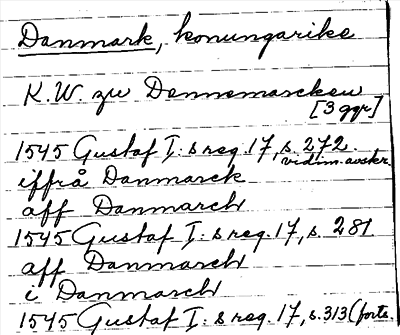 Danmark, konungarike
K.W. zu Dennemarcken
[3 ggr]
1545 Gustaf I:s reg. 17, s. 272.
vidim. avskr.
iffrå Danmarck
aff Danmarch
1545 Gustaf I:s reg. 17, s. 281
aff Danmarch
i Danmarch
1545 Gustaf I:s reg. 17, s. 313 (forts.